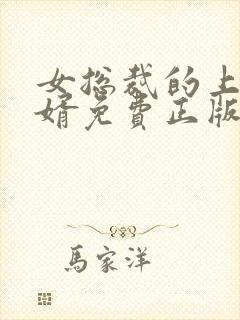 女总裁的上
婿免費正版
馬家洋